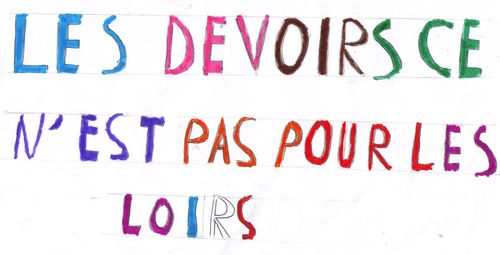 LES DEVOIRS CE
N'EST PAS POUR LES
LOIRS